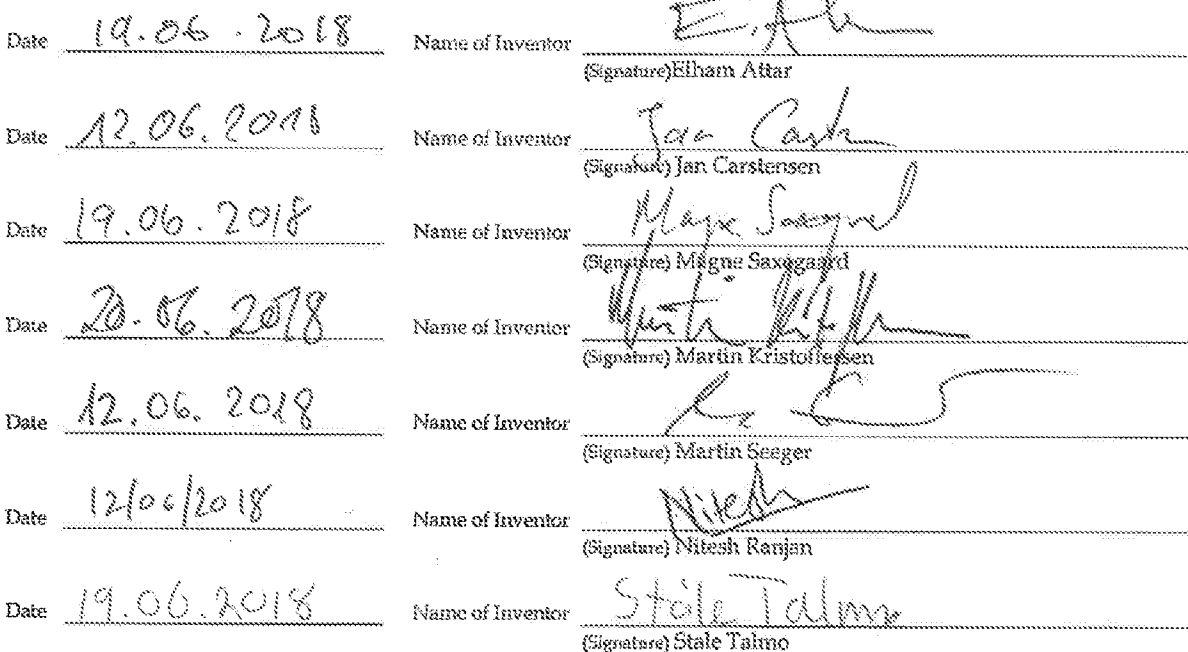 Date 19.06.2018 Name of Inventor E. At
(Signature)Elham Attar
Date 12.06.2018 Name of Inventor Jan Carst
(Signature) Jan Carstensen
Date 19.06.2018 Name of Inventor Magne Saxegaard
(Signature) Magne Saxegaard
Date 20.06.2018 Name of Inventor
(Signature) Martin Kristoffersen
Date 12.06.2018 Name of Inventor
(Signature) Martin Seeger
Date 12/06/2018 Name of Inventor Nitesh
(Signature) Nitesh Ranjan
Date 19.06.2018 Name of Inventor Ståle Talmo
(Signature) Stale Talmo